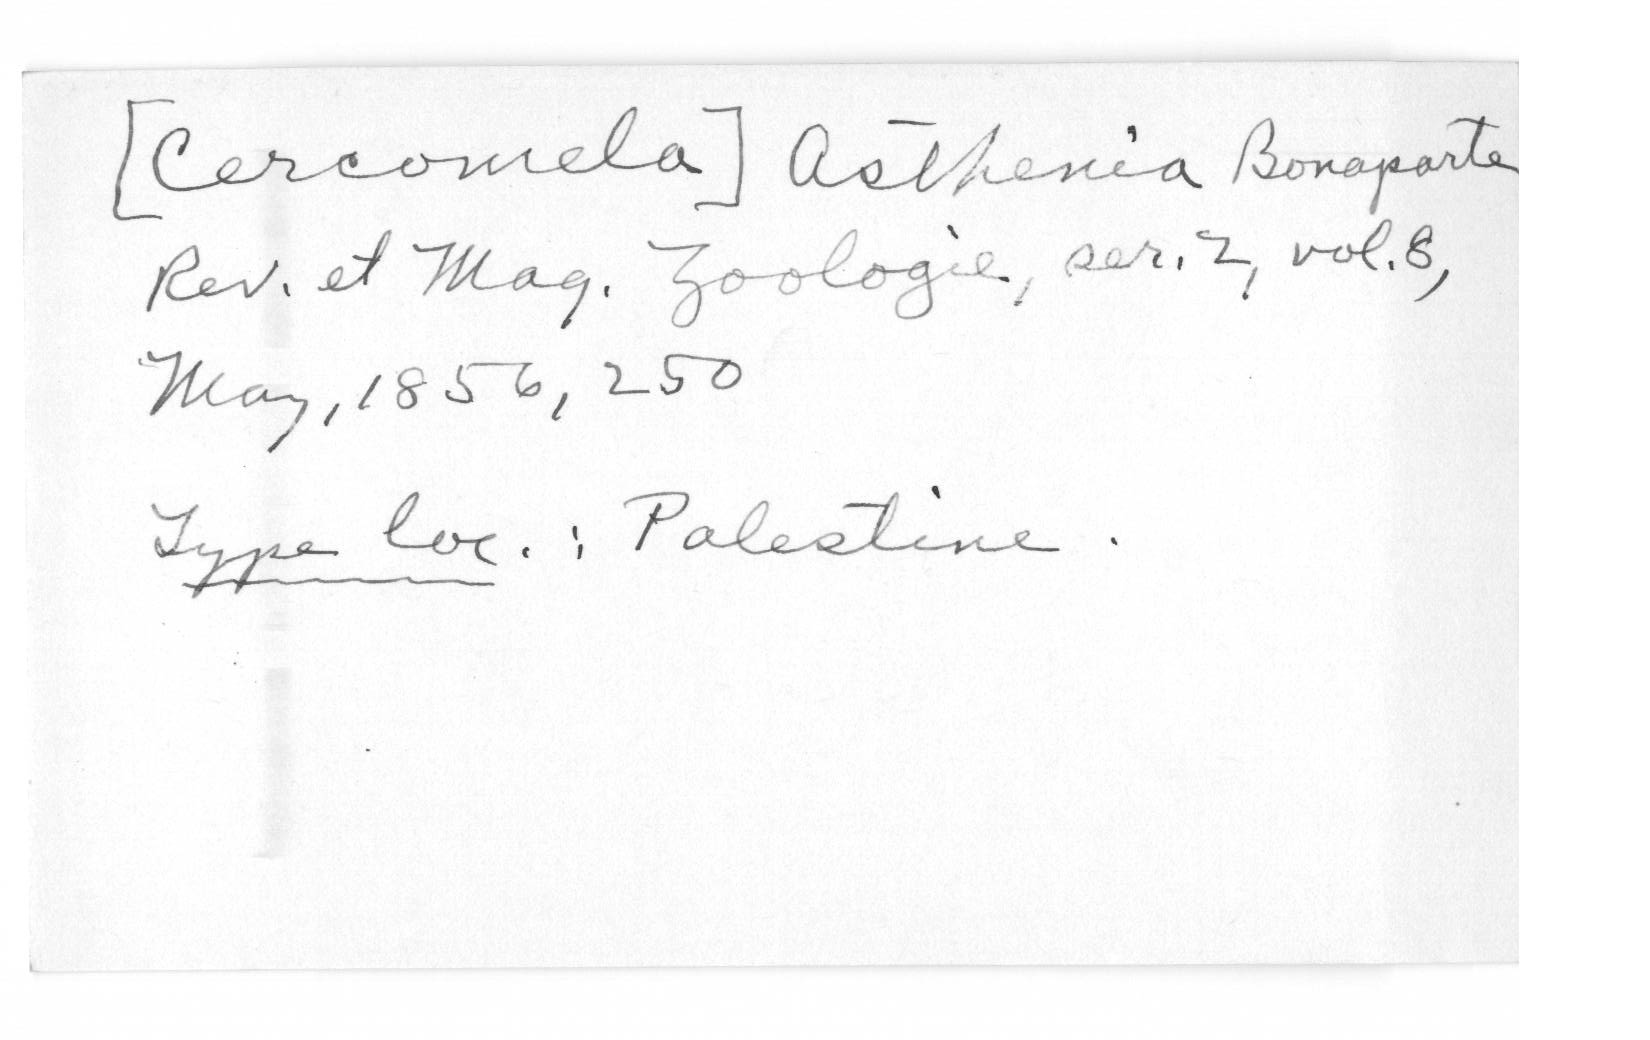 [Cercomela] Asthenia Bonaparte
Rev. et Mag. Zoologie, ser. 2, vol. 8,
May, 1856, 250
Type loc. : Palestine .